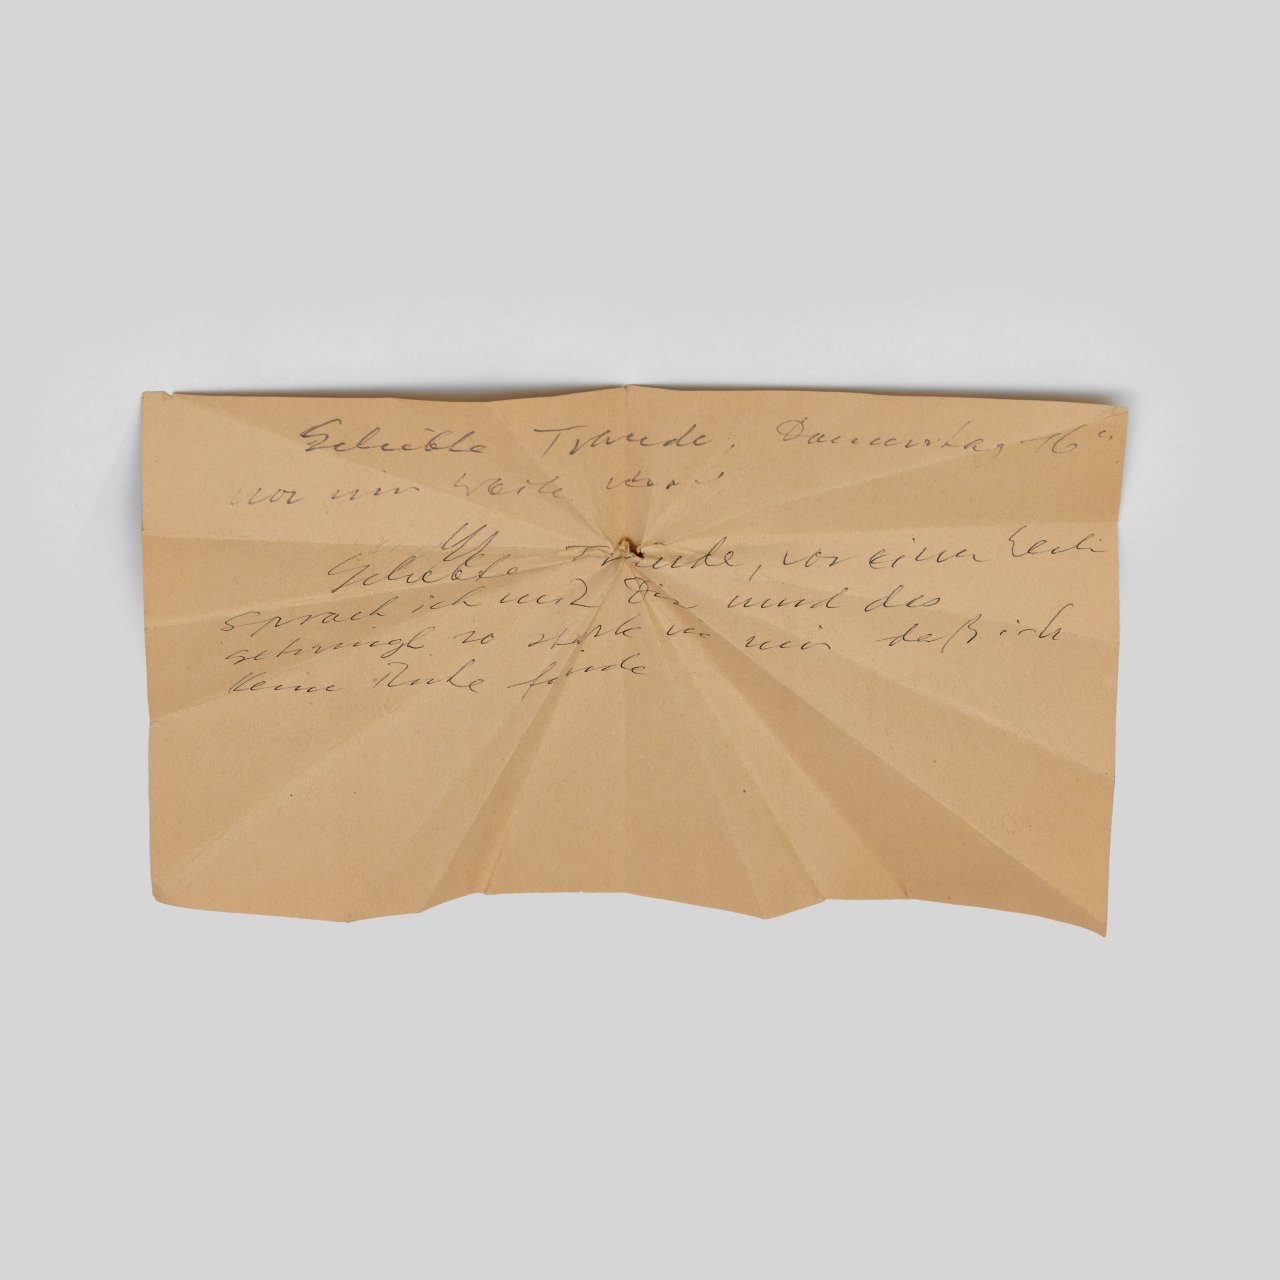 Geliebte Traude, Donnerstag 16
vor
Geliebte Traude, vor einer
sprach ich mit Dir und das
schwingt so stark in mir daß ich
keine Ruhe finde